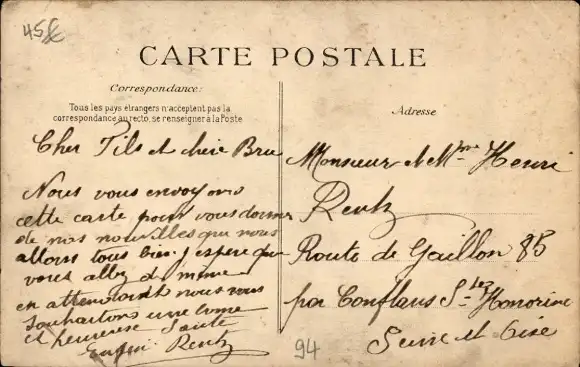 45€
CARTE POSTALE
Correspondance:
Tous les pays étrangers n'acceptent pas la
correspondance au recto, se renseigner à la Poste
Adresse
Cher Fils et chère Bru
Nous vous envoyons
cette carte pour vous donner
de nos nouvelles que nous
allons tous bien j'espere que
vous allez de meme
en attendant nous vous
souhaitons une bonne
et heureuse Santé
Rentz
Monsieur et Mme Henri
Rentz
Route de Gaillon 85
par Conflans Ste Honorine
Seine et Oise
94